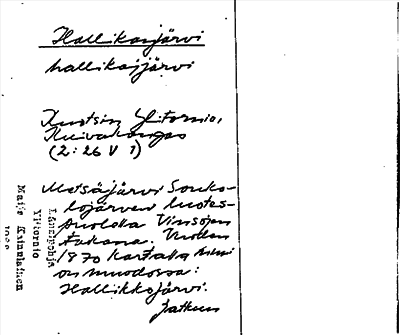 Hallikasjärvi
hallikajjärvi
Ruotsin Ylitornio,
Kuivakangas
(2:26 V 1)
Metsäjärvi Souko-
lojärven luotes-
puolella Vinsajen
takana. Vuoden
1870 kartalla nimi
on muodossa:
Hallikkojärvi.
Jatkuu
Länsipohja
Ylitornio
Maija Keinulainen